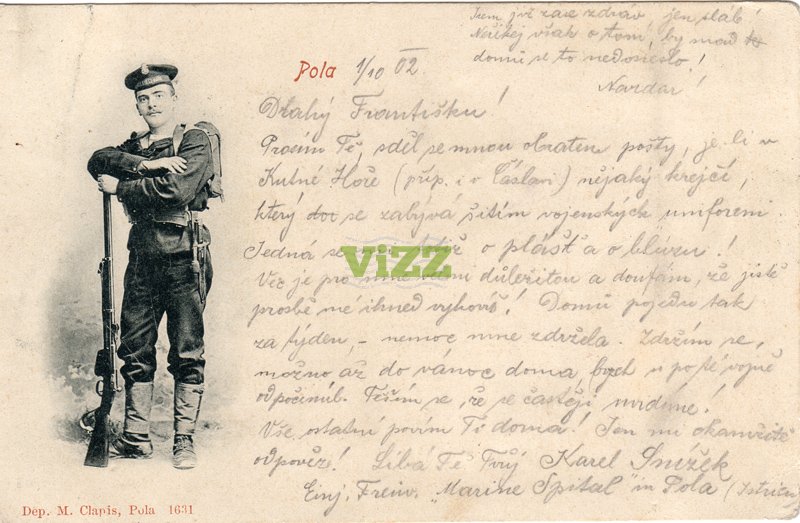 Jsem již zase zdráv, jen sláb!
Neříkej však o tom, by mad to
domů se to nedoneslo!
Nazdar!
Pola 1/10 02.
Drahý Františku!
Prosím Tě, sděl se mnou obratem pošty, je-li v
Kutné Hoře (příp. i v Čáslavi) nějaký krejčí,
který se zabývá šitím vojenských uniforem.
Jedná se o plášť a o blůzu!
Věc je pro mne důležitou a doufám, že jistě
prosbě mé ihned vyhovíš! Domů pojedu tak
za týden, – nemoc mne zdržela. Zdržím se,
možno až do vánoc doma, bych si po té vojně
odpočinul. Těším se, že se častěji uvidíme!
Vše ostatní povím Ti doma! Jen mi okamžitě
odpověz! Líbá Tě Tvůj Karel Snížek
Einj. Freiw. "Marine Spital" in Pola (Istrien)
VIZZ
Dep. M. Clapis, Pola 1631